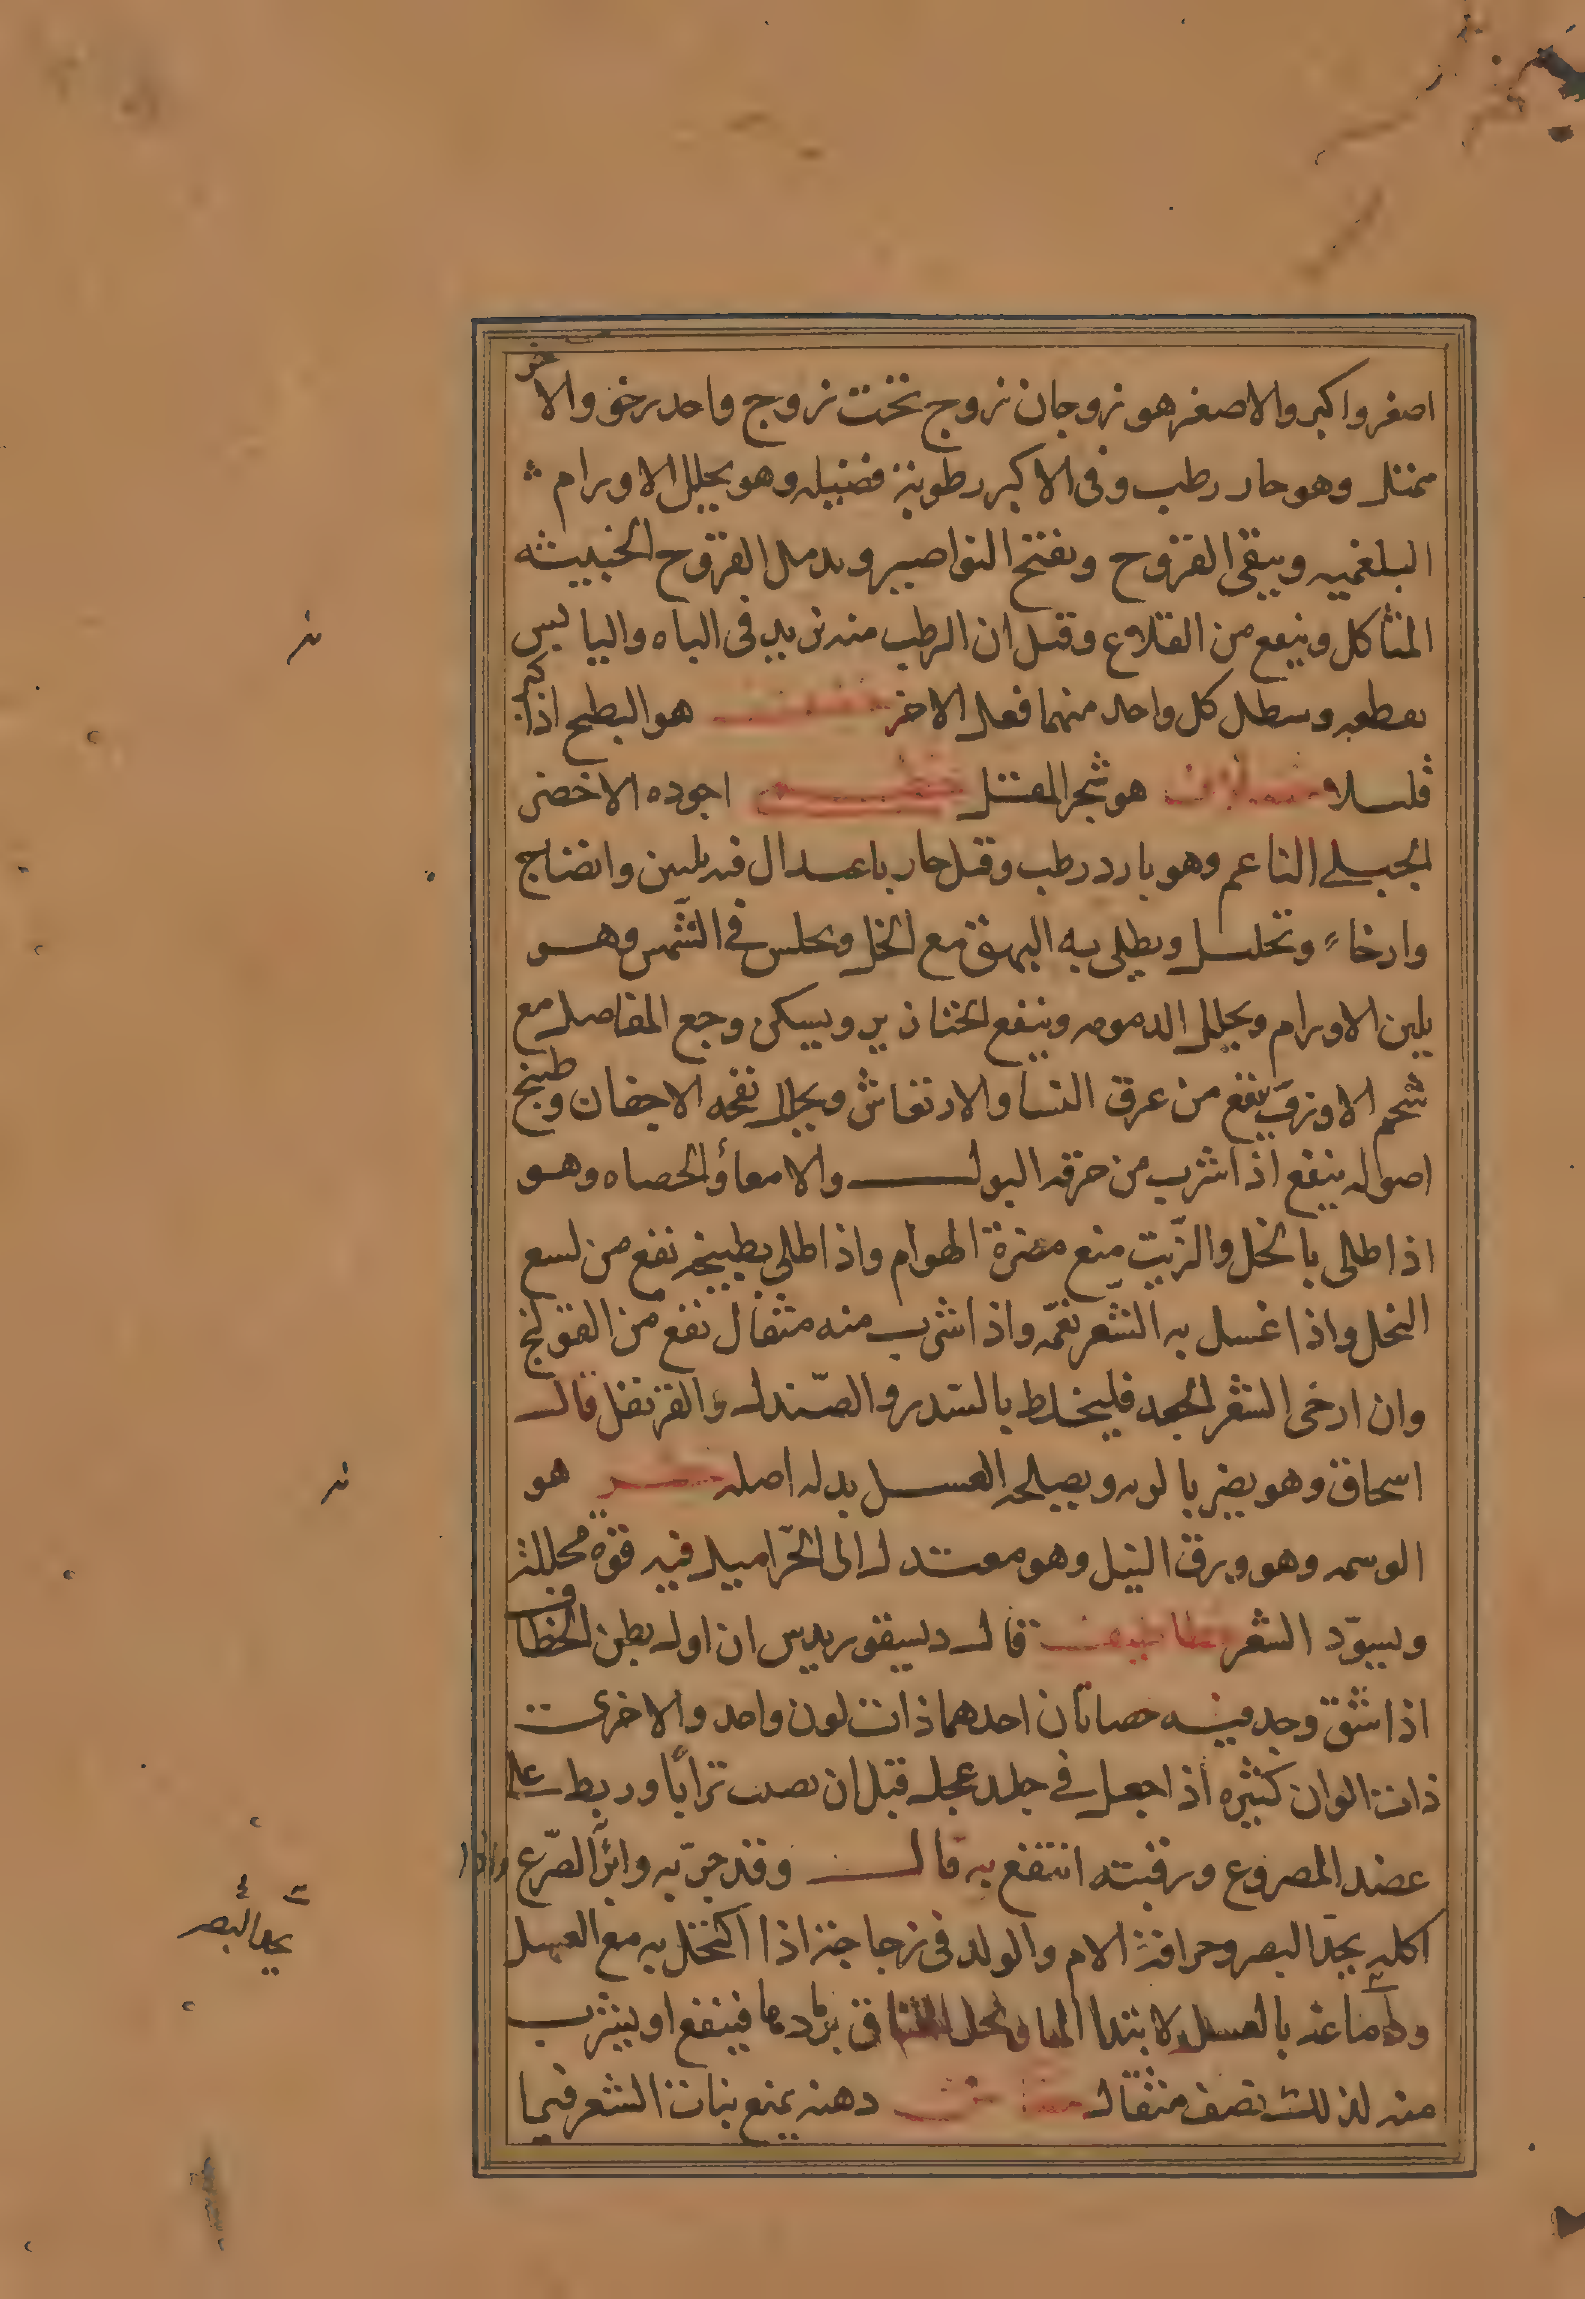 اصغر واكبر والاصغر هو زوجان زوج تحت زوج واحد رخو والاخر
ممتلى وهو حار رطب وفى الاكبر رطوبة فضليه وهو يحلل الاورام
البلغميه وينقى القروح ويفتح النواصير ويدمل القروح الخبيثه
المتأكل وينفع من القلاع وقيل ان الرطب منه يزيد فى الباه واليابس
يقطعه ويبطل كل واحد منهما فعل الاخر هو البطيخ اذا كبر
قليلا هو شجر المقل خطمى اجوده الاخضر
الجبلى الناعم وهو بارد رطب وقيل حار باعتدال فيه تليين وانضاج
وارخاء وتحليل ويطلى به البهق مع الخل ويجلس فى الشمس وهو
يلين الاورام ويحلل الدمويه وينفع الخنازير ويسكن وجع المفاصل مع
شحم الاوز وينفع من عرق النسا والارتعاش ويحلل نفخه الاجفان وطبيخ
اصوله ينفع اذا شرب من حرقه البول والامعاء والحصاه وهو
اذا طلى بالخل والزّيت منع مضرة الهوام واذا طلى بطبيخه نفع من لسع
النحل واذا غسل به الشعر نعّمه واذا شرب منه مثقال نفع من القولنج
وان ارخى الشعر الجعد فليخلط بالسّدر والصّندل والقرنفل قال
اسحاق وهو يضر بالريه ويصلحه العسل بدله اصله خطر هو
الوسمه وهو ورق النيل وهو معتدل الى الحّر اميل فيه قوه محللة
ويسوّد الشعر خطاطيف قال ديسقوريدس ان اول بطن الخطاف
اذا شق وجد فيه حصاتان احدهما ذات لون واحد والاخرى
ذات الوان كثيره اذا جعل فى جلد عجل قبل ان يصيب ترابًا وربط على
عضد المصروع ورقبته انتفع به قال وقد جرّبه وابرأ الصّرع واذا
اكله يحدّ البصر وحراقة الام والولد فى زجاجة اذا اكتحل به مع العسل
بالعسل لابتدا الما فينفع او يشرب
منه لذلك نصف مثقال خفاش دهنه يمنع نبات الشعر فيما
يحد البصر